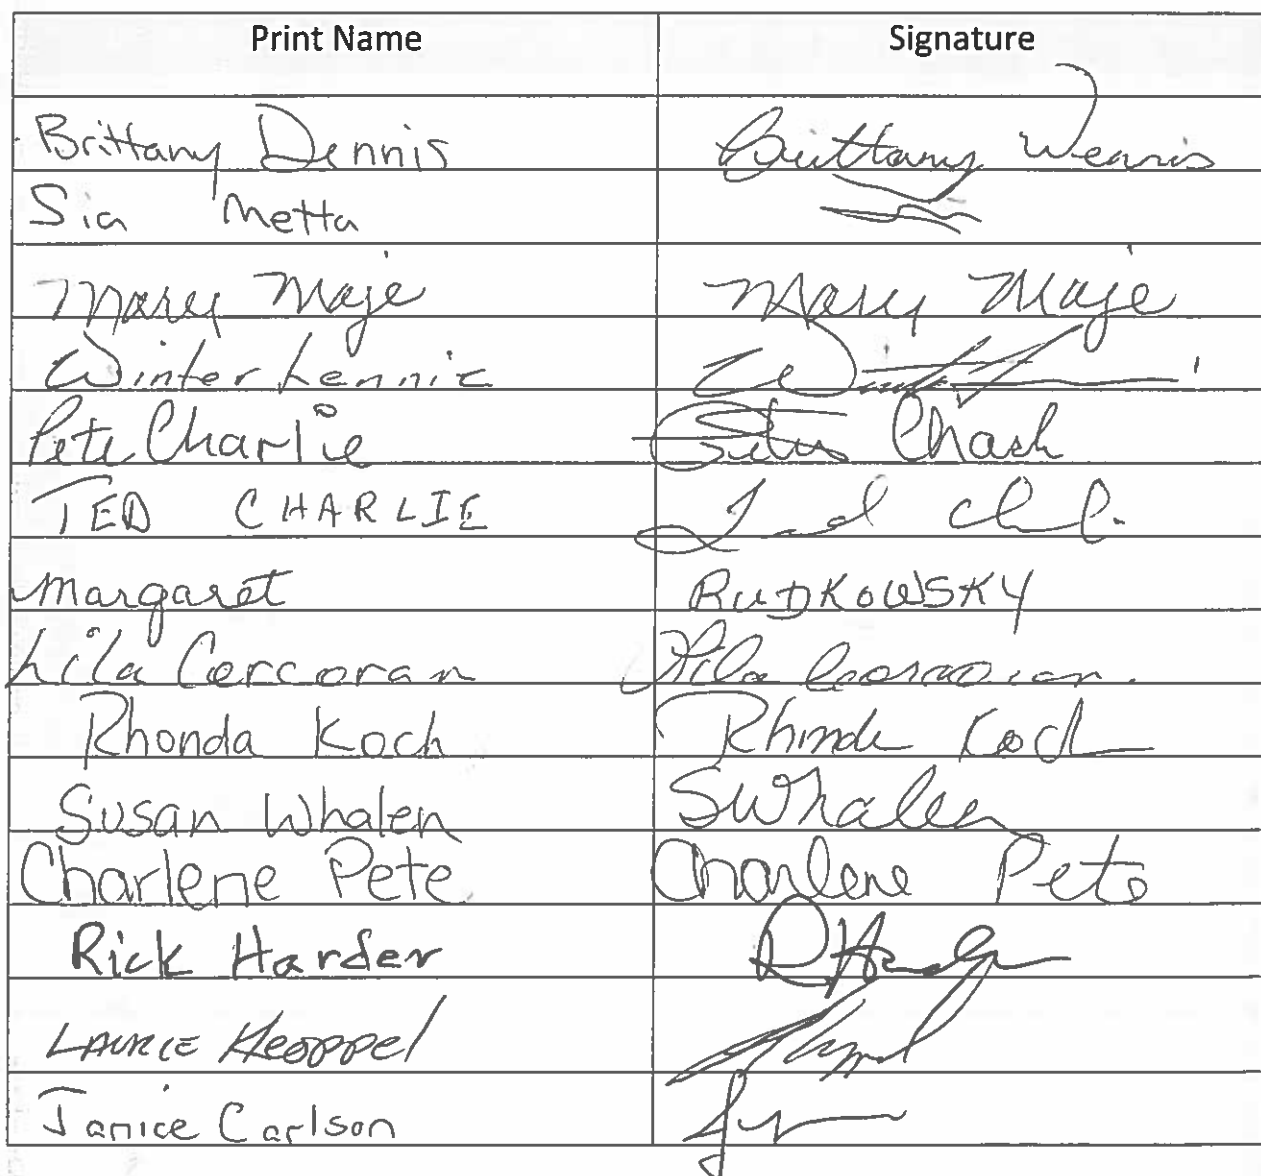 Print Name Signature
Brittany Dennis Brittany Dennis
Sia Metta
Mary Maje Mary Maje
Winter Lennie
Pete Charlie
TED CHARLIE Ted
Margaret RUDKOWSKY
Lila Corcoran Lila Corcoran.
Rhonda Koch Rhonda Koch
Susan Whalen SWhalen
Charlene Pete Charlene Pete
Rick Harder R Harder
LAURIE Keoppel
Janice Carlson